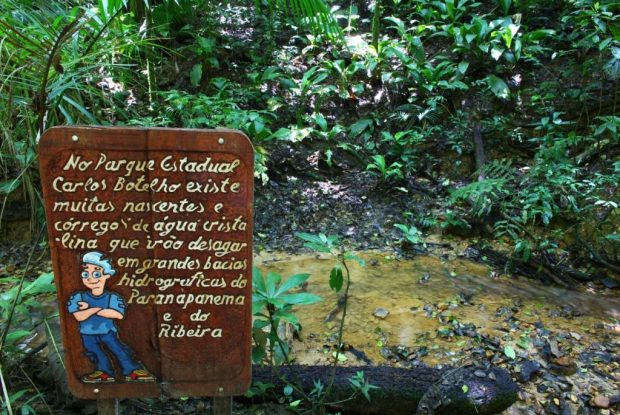 No Parque Estadual
Carlos Botelho existe
muitas nascentes e
córregos de água crista
lina que vão desagar
em grandes bacias
hidrograficas do
Paranapanema
e do
Ribeira